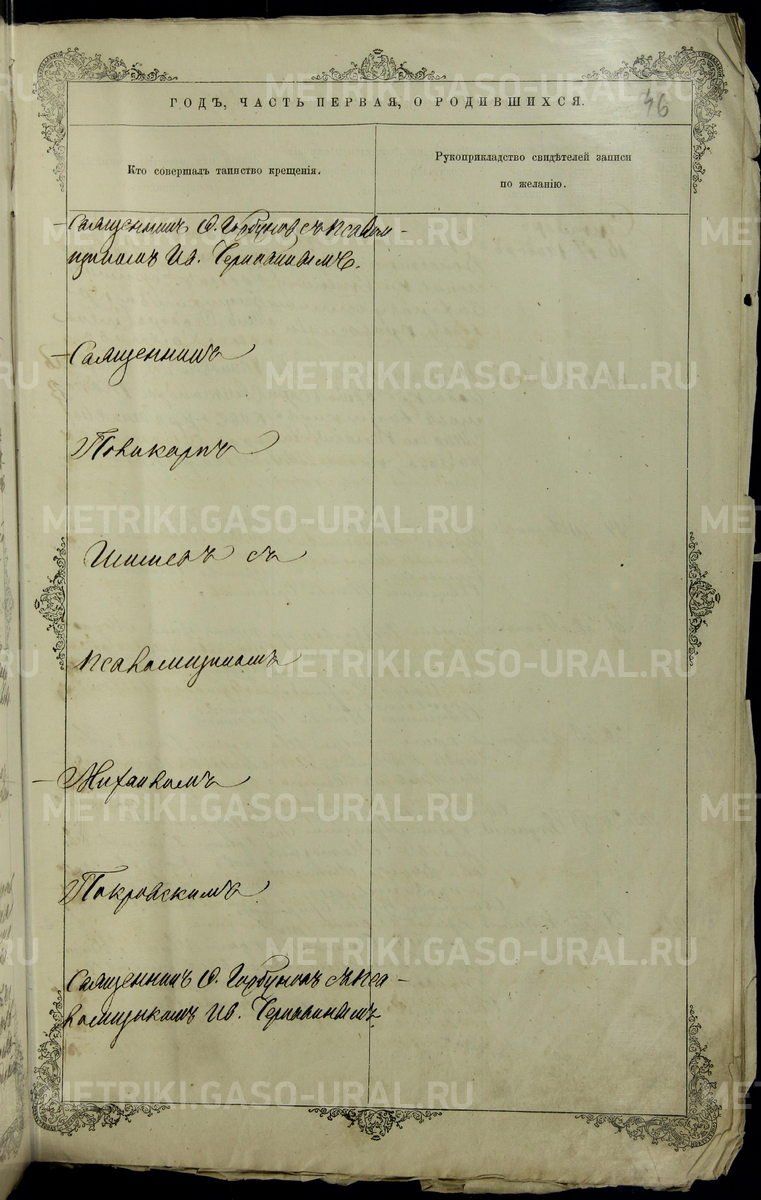 46
ГОДЪ, ЧАСТЬ ПЕРВАЯ, О РОДИВШИХСЯ.
Кто совершалъ таинство крещенія.
Рукоприкладство свидѣтелей записи
по желанію.
Священникъ Ѳ. Горбуновъ съ псалом-
щикомъ Ив.
Священникъ
Поликарпъ
съ
псаломщикомъ
Михаиломъ
Покровскимъ
Священникъ Ѳ. Горбуновъ съ пса-
ломщикомъ Ив.
METRIKI.GASO-URAL.RU